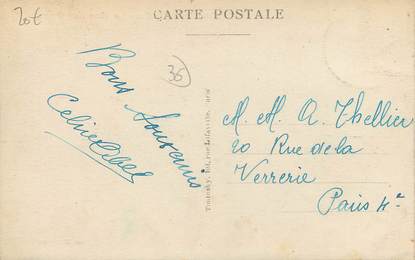 20€
CARTE POSTALE
35
Bons Souvenirs
M. M. A. Thellier
20 Rue de la
Verrerie
Paris 4e